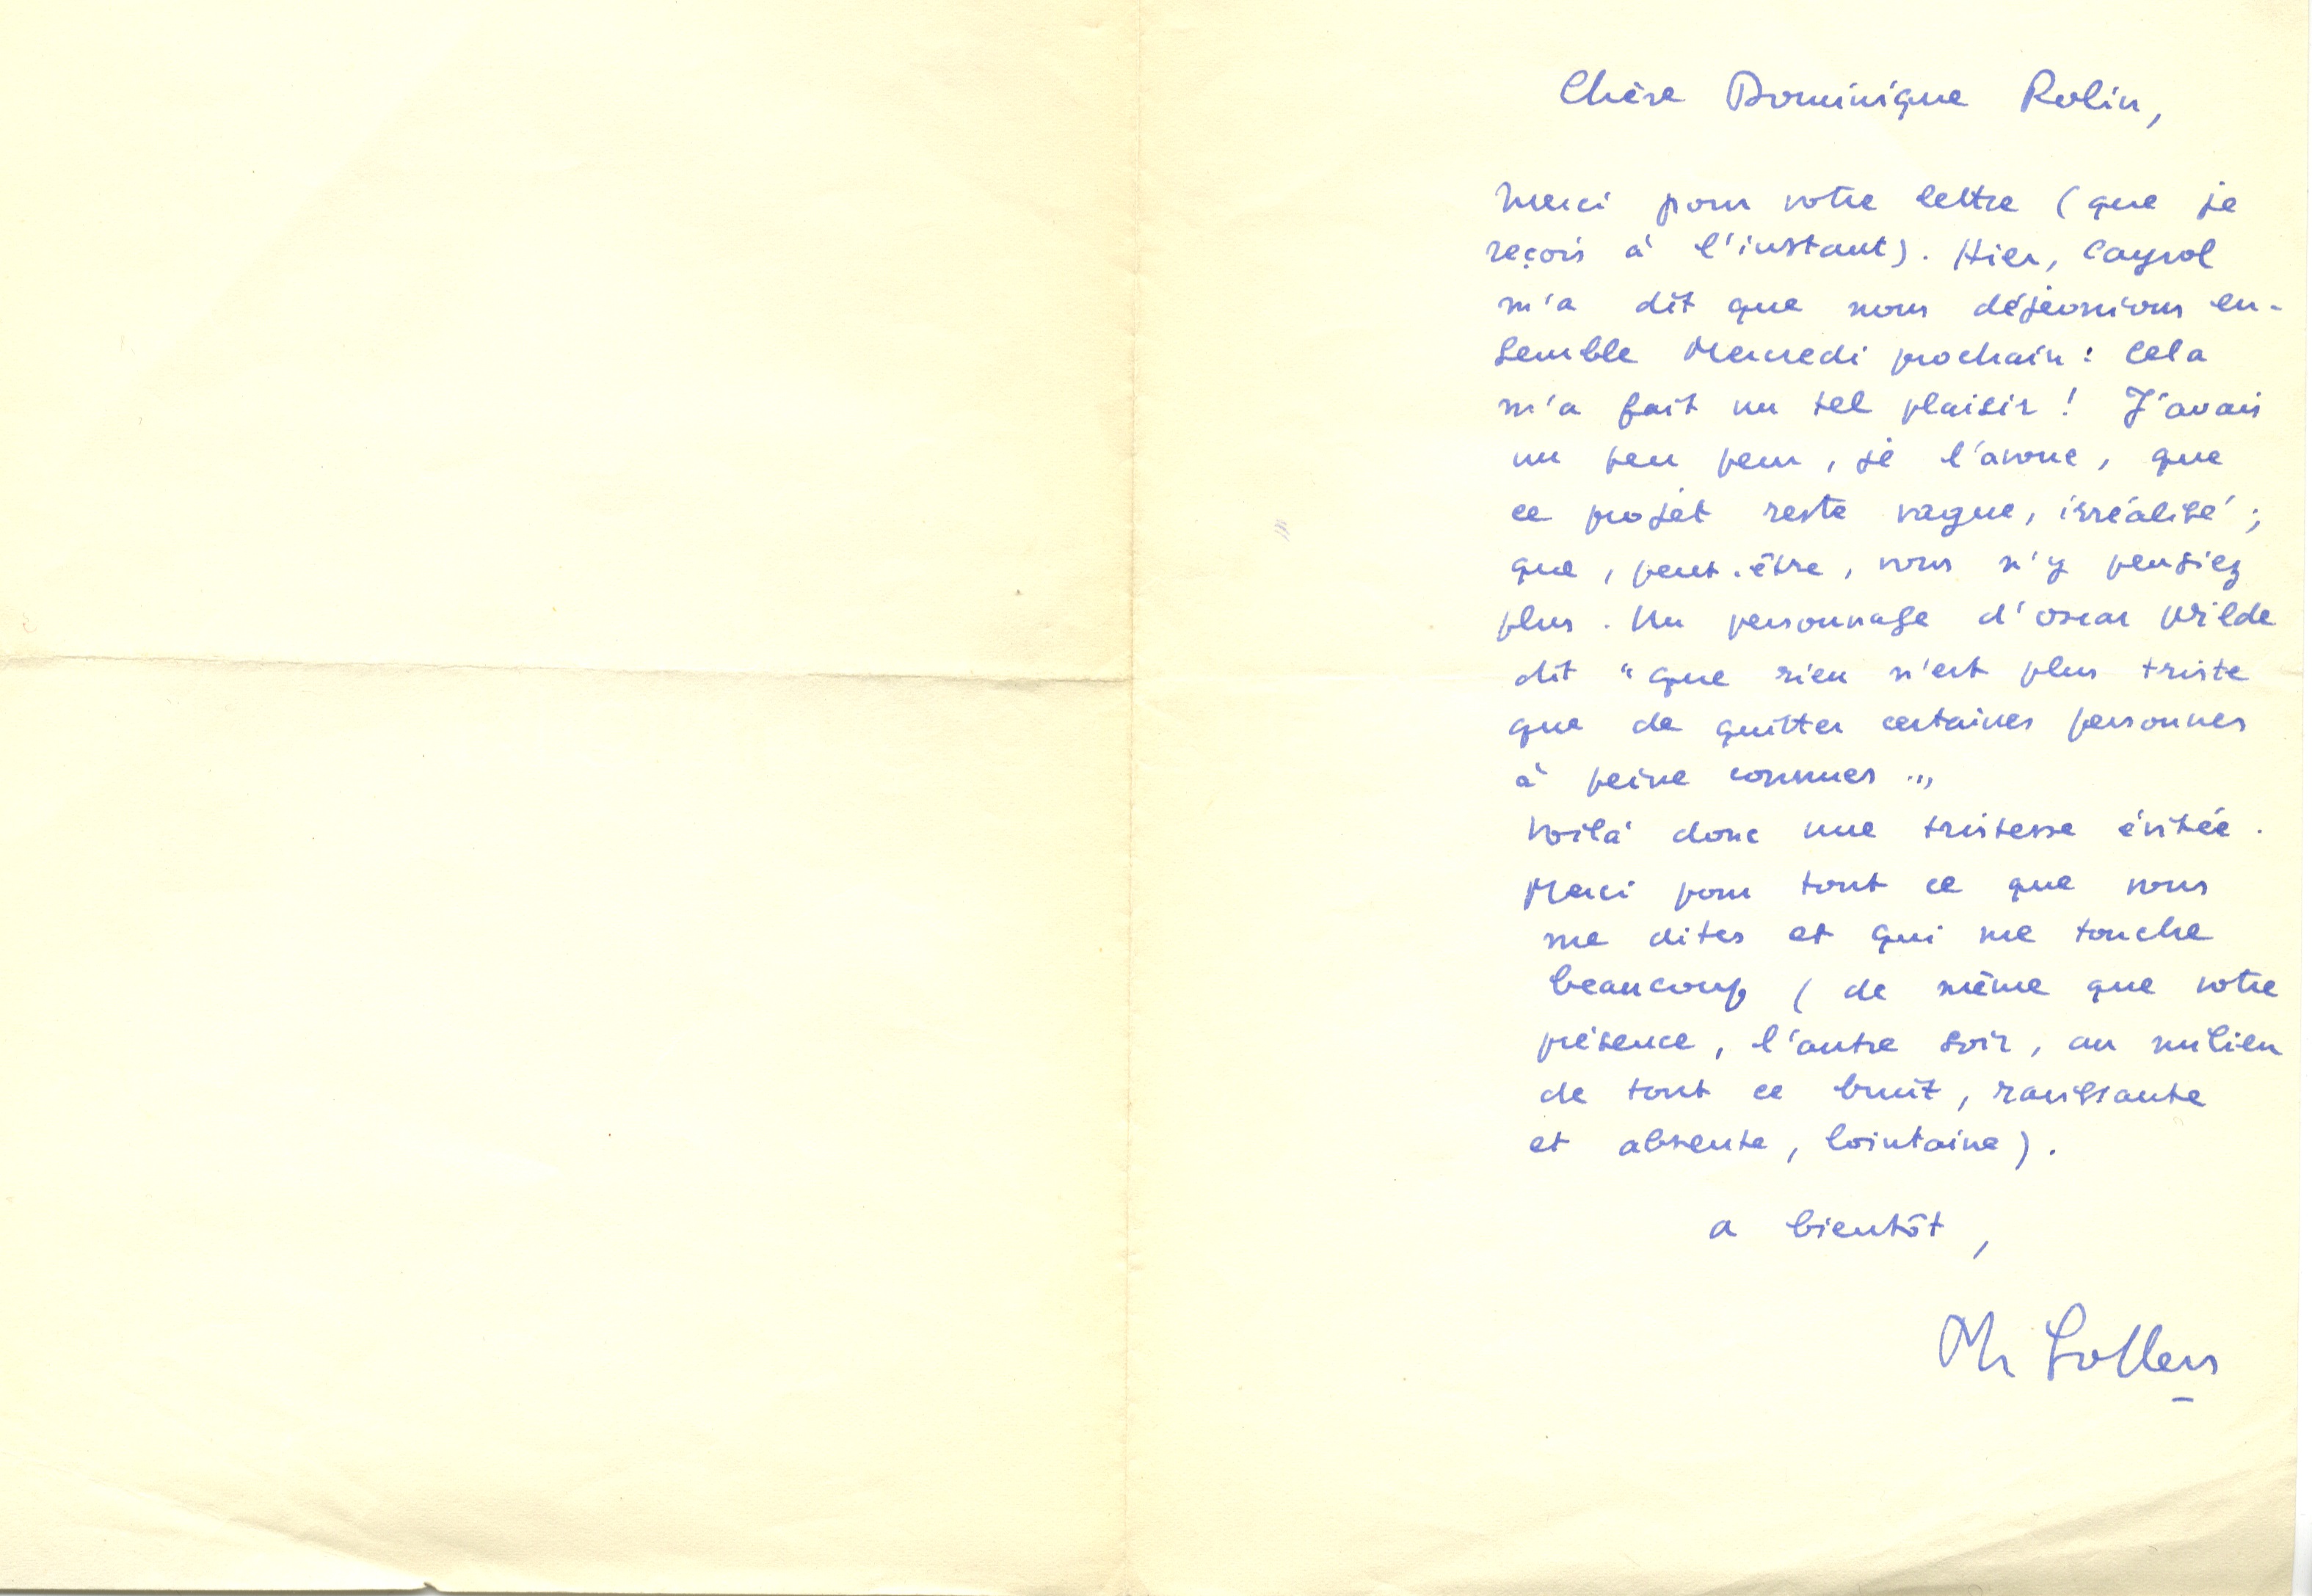 Chère Dominique Rolin,
Merci pour votre lettre (que je
reçois à l'instant). Hier, Cayrol
m'a dit que nous déjeunions en-
semble Mercredi prochain : cela
m'a fait un tel plaisir ! J'avais
un peu peur, je l'avoue, que
ce projet reste vague, irréalisé ;
que, peut-être, vous n'y pensiez
plus. Un personnage d'Oscar Wilde
dit "que rien n'est plus triste
que de quitter certaines personnes
à peine connues."
Voilà donc une tristesse évitée.
Merci pour tout ce que vous
me dites et qui me touche
beaucoup (de même que votre
présence, l'autre soir, au milieu
de tout ce bruit, ravissante
et absente, lointaine).
a bientôt,
Ph Sollers